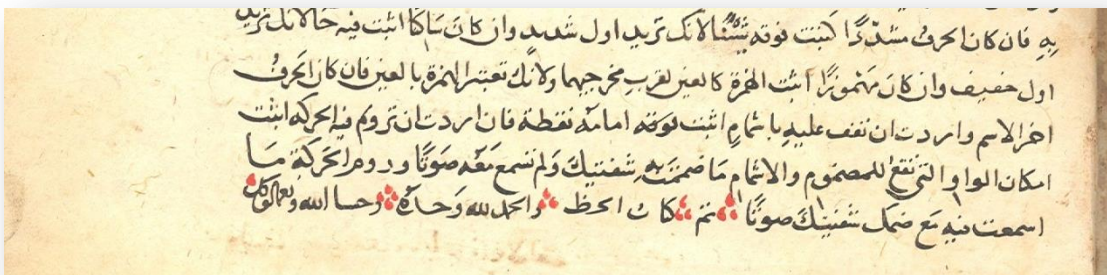 بِهِ فان كان الحرف مشدّدًا كتبت فوقه شينًا لانك تريد اول شديد وان كان ساكنا اثبت فيه خا لانك تريد
اول خفيف وان كان مهموزًا اثبت الهمزة كالعين لقرب مخرجيهما ولانك تعتبر الهمزة بالعين فان كان الحرفُ
اخر الاسم واردت ان تقف عليه باشمامٍ اثبت فوقه امامه نقطة فان اردت ان تروم فيه الحركة اثبت
امكان الواو التي تقع للمضموم والاشمام مَا ضممتَ بِهِ شفتيكَ ولم تسمع مَعَه صَوتًا وروم الحركة مَا
اسمعت فيه مَع ضمك شفتيكَ صوتًا تم كتاب الخط والحمد لله وَحدَهُ وحسبنا الله ونعم الوكيل